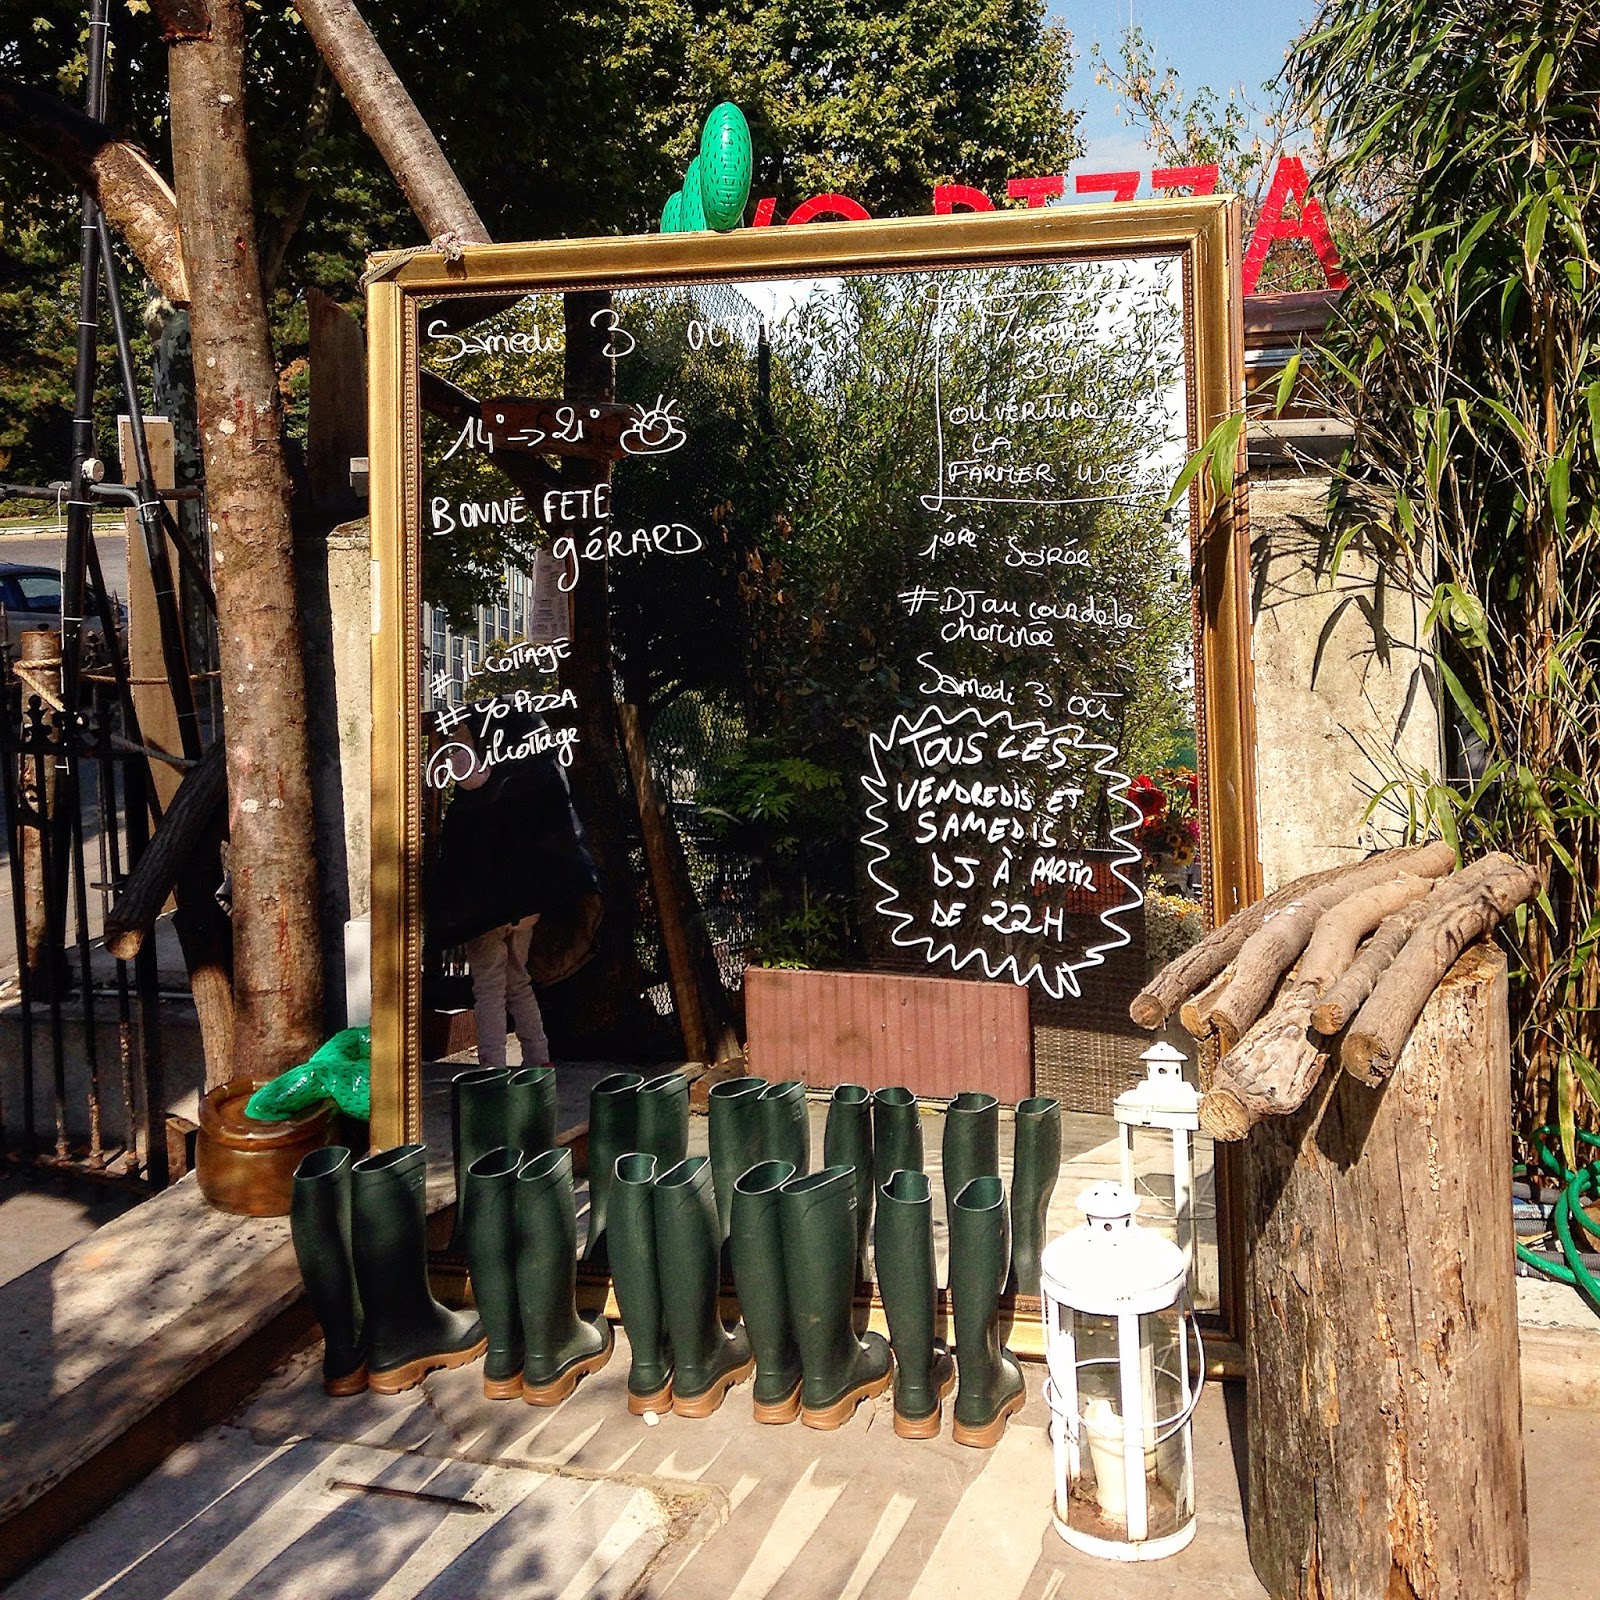 YO PIZZA
Samedi 3 OCTOBRE
14° → 21°
BONNE FETE
GÉRARD
#ilcottage
#YO PIZZA
@ilcottage
OUVERTURE
LA
FARMER WEEK
1ère Soirée
#DJ au
Samedi 3 OCT
TOUS LES
VENDREDIS ET
SAMEDIS
DJ À PARTIR
DE 22H